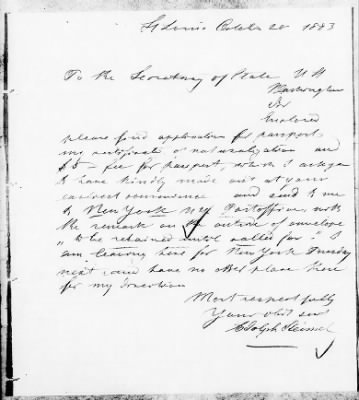 St Louis October 20 1883
To the Secretary of State U S
Washington
Sir
Enclosed
please find application for passport
my certificate of naturalization and
$5 – fee for passport, which I ask you
to have kindly made out at your
earliest convenience and send to me
to New York City Postoffice, with
the remark on the outside of envelope
"to be retained until called for". I
am leaving here for New York Tuesday
next and have no other place there
for my direction
Most respectfully
Your obdt servt
Adolph